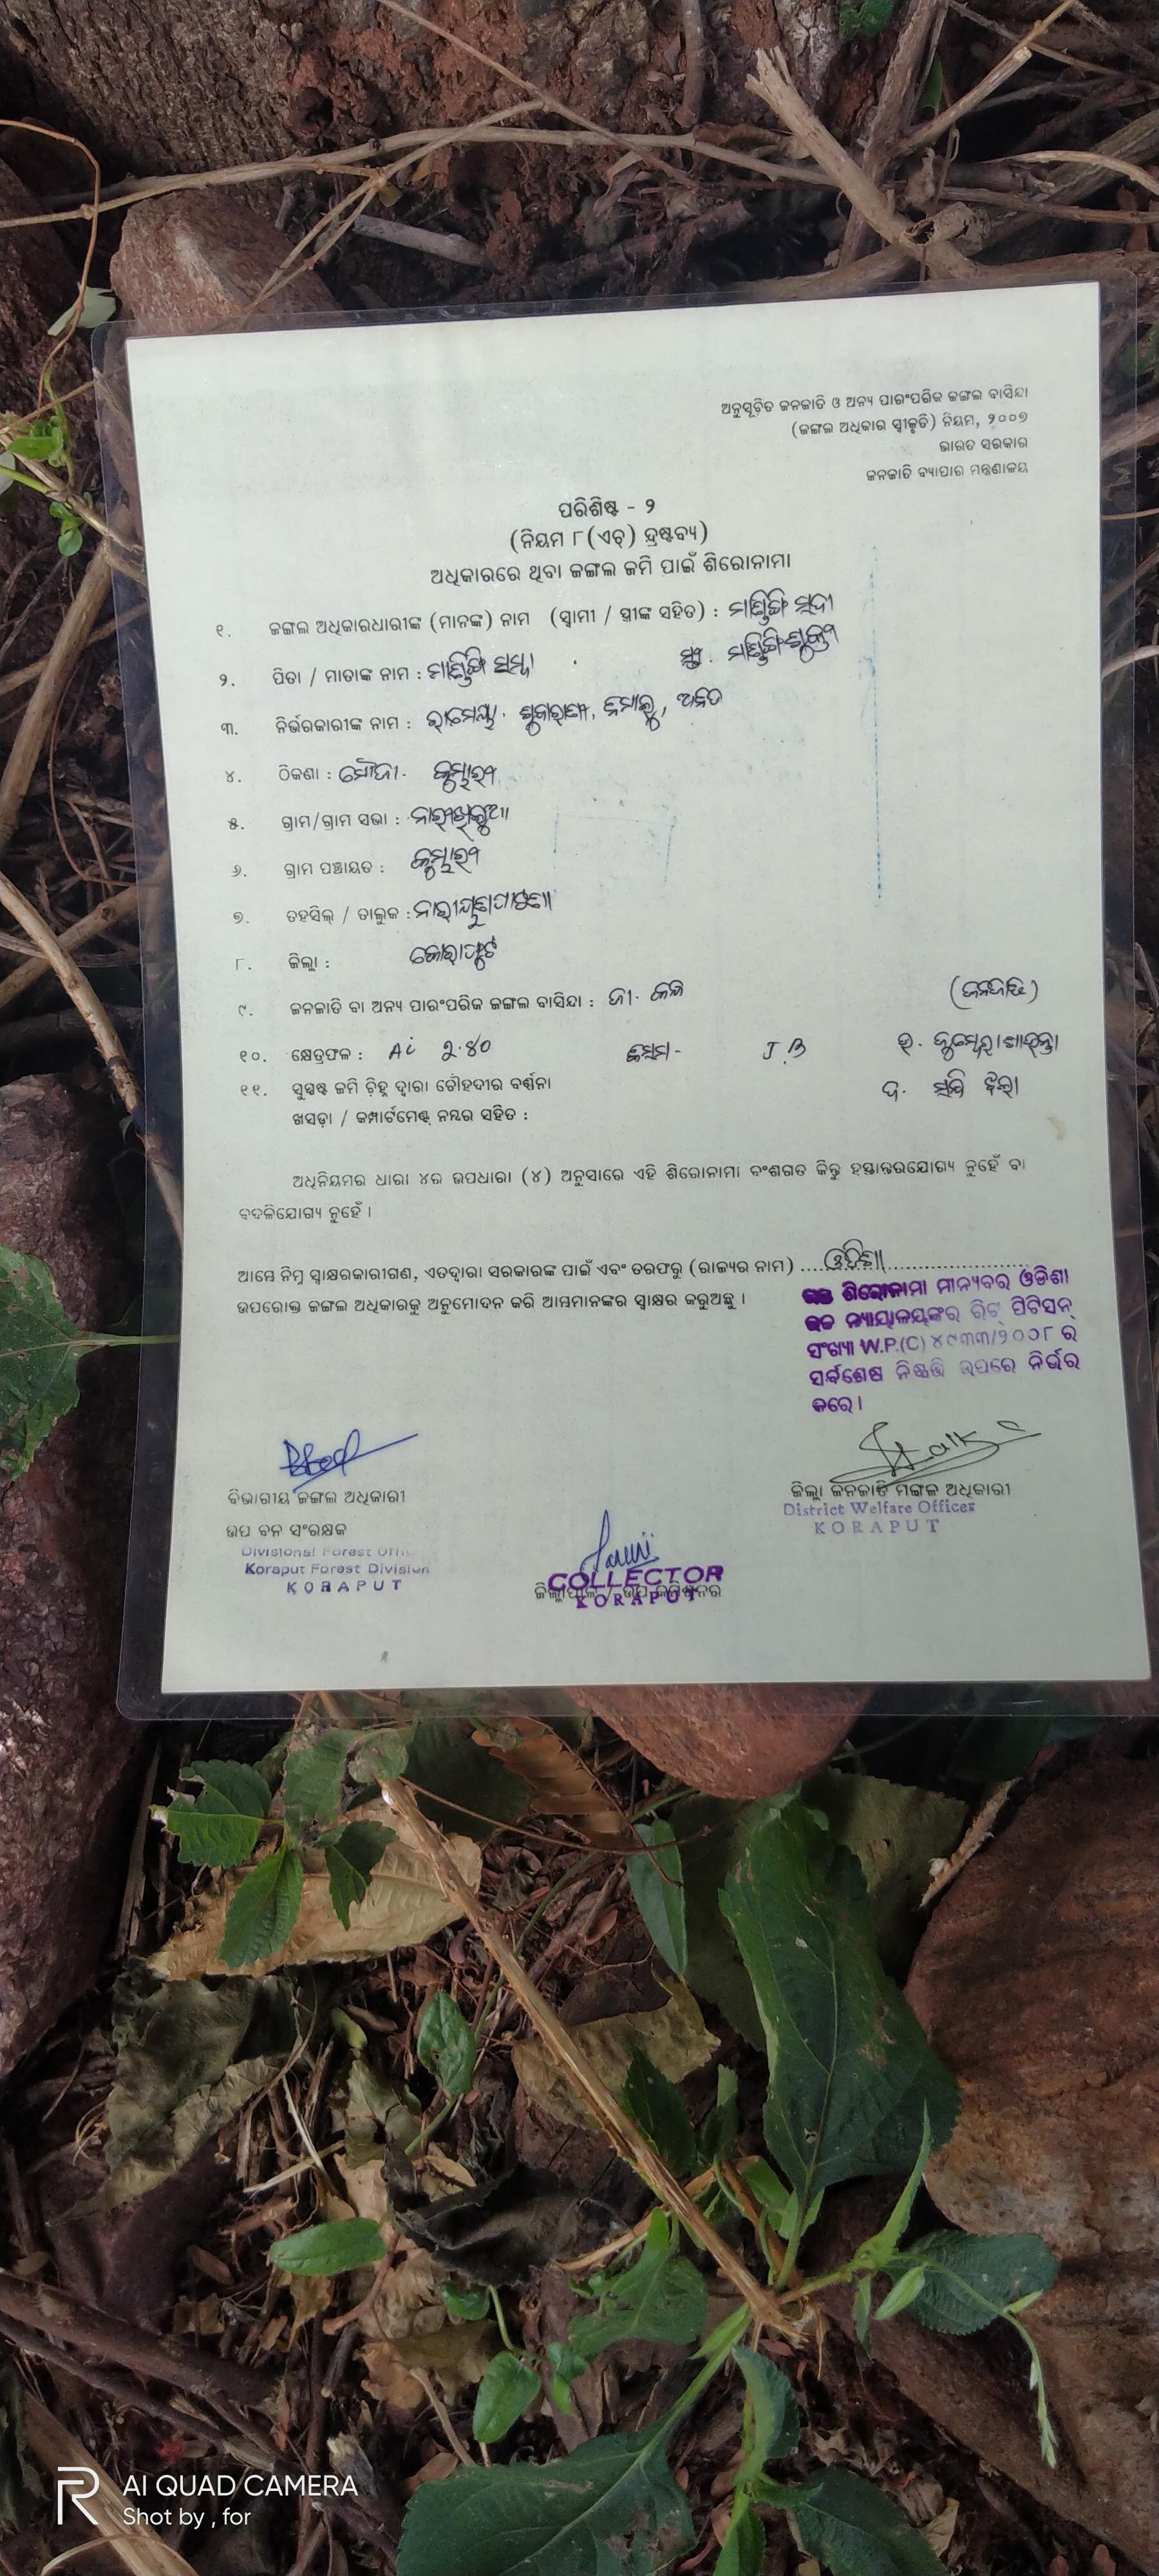 ଅନୁସୂଚିତ ଜନଜାତି ଓ ଅନ୍ୟ ପାରଂପରିକ ଜଙ୍ଗଲ ବାସିନ୍ଦା
(ଜଙ୍ଗଲ ଅଧିକାର ସ୍ୱୀକୃତି) ନିୟମ, ୨୦୦୭
ଭାରତ ସରକାର
ଜନଜାତି ବ୍ୟାପାର ମନ୍ତ୍ରଣାଳୟ
ପରିଶିଷ୍ଟ - ୨
(ନିୟମ ୮(ଏଚ୍) ଦ୍ରଷ୍ଟବ୍ୟ)
ଅଧିକାରରେ ଥିବା ଜଙ୍ଗଲ ଜମି ପାଇଁ ଶିରୋନାମା
୧. ଜଙ୍ଗଲ ଅଧିକାରଧାରୀଙ୍କ (ମାନଙ୍କ) ନାମ (ସ୍ୱାମୀ / ସ୍ତ୍ରୀଙ୍କ ସହିତ) : ମାଣ୍ଡିଙ୍ଗି
୨. ପିତା / ମାତାଙ୍କ ନାମ : ମାଣ୍ଡିଙ୍ଗି
୩. ନିର୍ଭରକାରୀଙ୍କ ନାମ :
୪. ଠିକଣା : ମୌଜା. କୁମ୍ଭାରୀ
୫. ଗ୍ରାମ/ଗ୍ରାମ ସଭା :
୬. ଗ୍ରାମ ପଞ୍ଚାୟତ : କୁମ୍ଭାରୀ
୭. ତହସିଲ୍ / ତାଲୁକ : ନାରାୟଣପାଟଣା
୮. ଜିଲ୍ଲା : କୋରାପୁଟ
୯. ଜନଜାତି ବା ଅନ୍ୟ ପାରଂପରିକ ଜଙ୍ଗଲ ବାସିନ୍ଦା : (ଜନଜାତି)
୧୦. କ୍ଷେତ୍ରଫଳ : Ac ୨.୫୦ J.B
୧୧. ସୁସ୍ପଷ୍ଟ ଜମି ଚିହ୍ନ ଦ୍ୱାରା ଚୌହଦୀର ବର୍ଣ୍ଣନା
ଖସଡ଼ା / କମ୍ପାର୍ଟମେଣ୍ଟ୍ ନମ୍ବର ସହିତ :
ଅଧିନିୟମର ଧାରା ୪ର ଉପଧାରା (୪) ଅନୁସାରେ ଏହି ଶିରୋନାମା ବଂଶଗତ କିନ୍ତୁ ହସ୍ତାନ୍ତରଯୋଗ୍ୟ ନୁହେଁ ବା
ବଦଳିଯୋଗ୍ୟ ନୁହେଁ ।
ଆମ୍ଭେ ନିମ୍ନ ସ୍ୱାକ୍ଷରକାରୀଗଣ, ଏତଦ୍ୱାରା ସରକାରଙ୍କ ପାଇଁ ଏବଂ ତରଫରୁ (ରାଜ୍ୟର ନାମ) ....ଓଡିଶା....
ଉପରୋକ୍ତ ଜଙ୍ଗଲ ଅଧିକାରକୁ ଅନୁମୋଦନ କରି ଆମ୍ଭମାନଙ୍କର ସ୍ୱାକ୍ଷର କରୁଅଛୁ ।
ଶିରୋନାମା ମାନ୍ୟବର ଓଡିଶା
ନ୍ୟାୟାଳୟଙ୍କର ରିଟ୍ ପିଟିସନ୍
ସଂଖ୍ୟା W.P.(C) ୪୯୩୩/୨୦୦୮ ର
ସର୍ବଶେଷ ନିଷ୍ପତ୍ତି ଉପରେ ନିର୍ଭର
କରେ ।
ବିଭାଗୀୟ ଜଙ୍ଗଲ ଅଧିକାରୀ
ଉପ ବନ ସଂରକ୍ଷକ
Divisional Forest
Koraput Forest Division
KORAPUT
ଜିଲ୍ଲା ଜନଜାତି ମଙ୍ଗଳ ଅଧିକାରୀ
District Welfare Offices
KORAPUT
COLLECTOR
ଜିଲ୍ଲାପାଳ / ଉପ କମିଶନର
KORAPUT
R AI QUAD CAMERA
Shot by , for